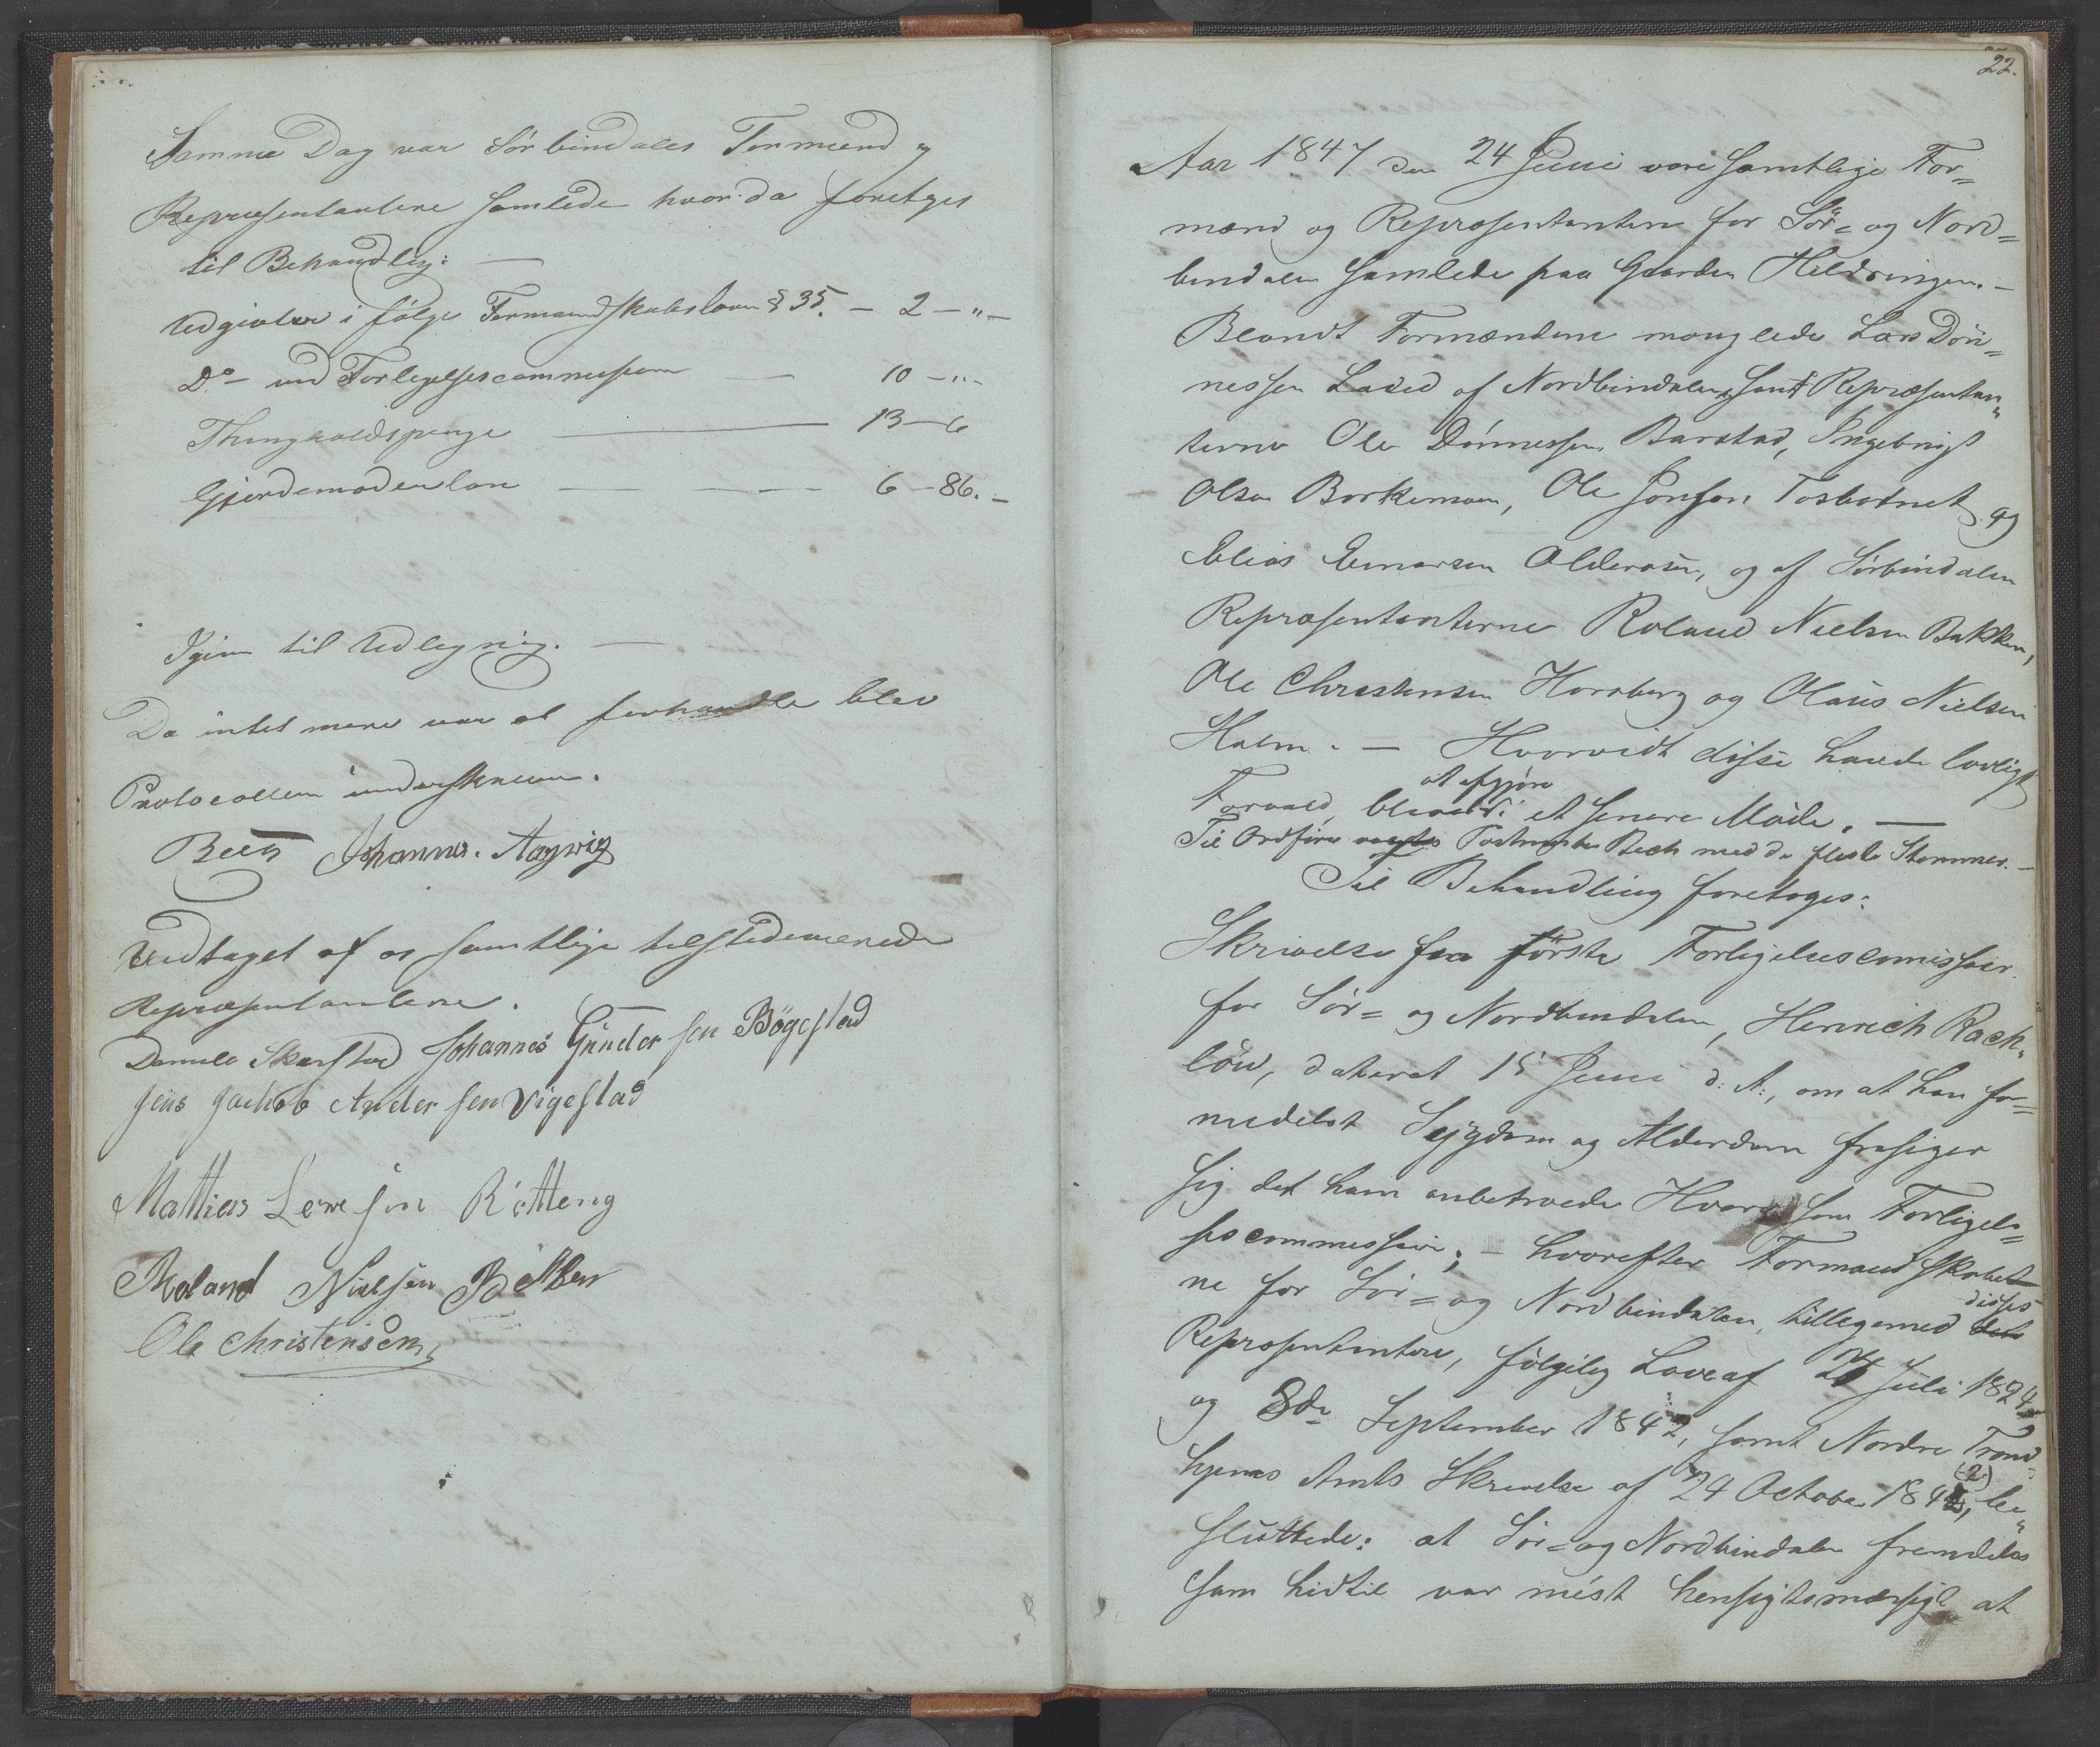 Samme Dag var Sörbindalens Formænd og
Repræsentantere samlede hvor da foretoges
til Behandling: —
Udgivter i fölge Formandskabsloven § 35. — 2 — " —
Do — ved Forligelsescommissionen — 10 — " —
Thingholdspenge — 13 — 6
Gjordemoderløn — — — 6 — 86. —
Igien til Udlegning. —
Da intet mere var at forhandle blev
Protocollen underskreven.
Beck Johannes. Aagwig
Vedtaget af os samtlige tilstedeværende
Repræsentantere.
Daniel Skarstad Johannes Gunder sen Bögestad
Jens Jachob Ander sen Vigestad
Mattias Lorn sen Rötteng
Roland Nielsen Bakken
Ole Christensen
22.
Aar 1847 den 24 Juni vare samtlige For=
mænd og Repræsentantere for Sör= og Nord=
bindalen samlede paa Gaarden Heldringen. —
Blandt Formændene manglede Lars Dön=
nessen Lased af Nordbindalen, samt Repræsentan=
terne Ole Dönnessen Barstad, Ingebrigt
Olsen Borkemoen, Ole Jonsen Tosbotnet og
Elias Einarsen Alderaasen, og af Sörbindalen
Repræsentanterne Roland Nielsen Bakken,
Ole Christensen Hornberg og Olaus Nielsen
Holm. — Hvorvidt disse havde lovligt
at afgjöre
Forfald, blev i et senere Möde. —
Til Ordförer valgtes Beck med de fleste Stemmer. —
Til Behandling foretoges:
Skrivelse fra förste Forligelsescomissær
for Sör= og Nordbindalen, Henrich Rach=
löw, dateret 15 Juni d: A:, om at han for=
medelst Sygdom og Alderdom frasiger
sig det ham anbetroede Hverv som Forligel=
sescommissair; — hvorefter Formandskabet
ne for Sör= og Nordbindalen, tilligemed disses
Repræsentantere, fölgelig Love af 24 Juli 1824
og 8de September 1842, samt Nordre Trond=
hjems Amts Skrivelse af 24 October 1842, (2) be=
sluttede: at Sör= og Nordbindalen fremdeles
som hidtil var mést hensigtsmæssigt at